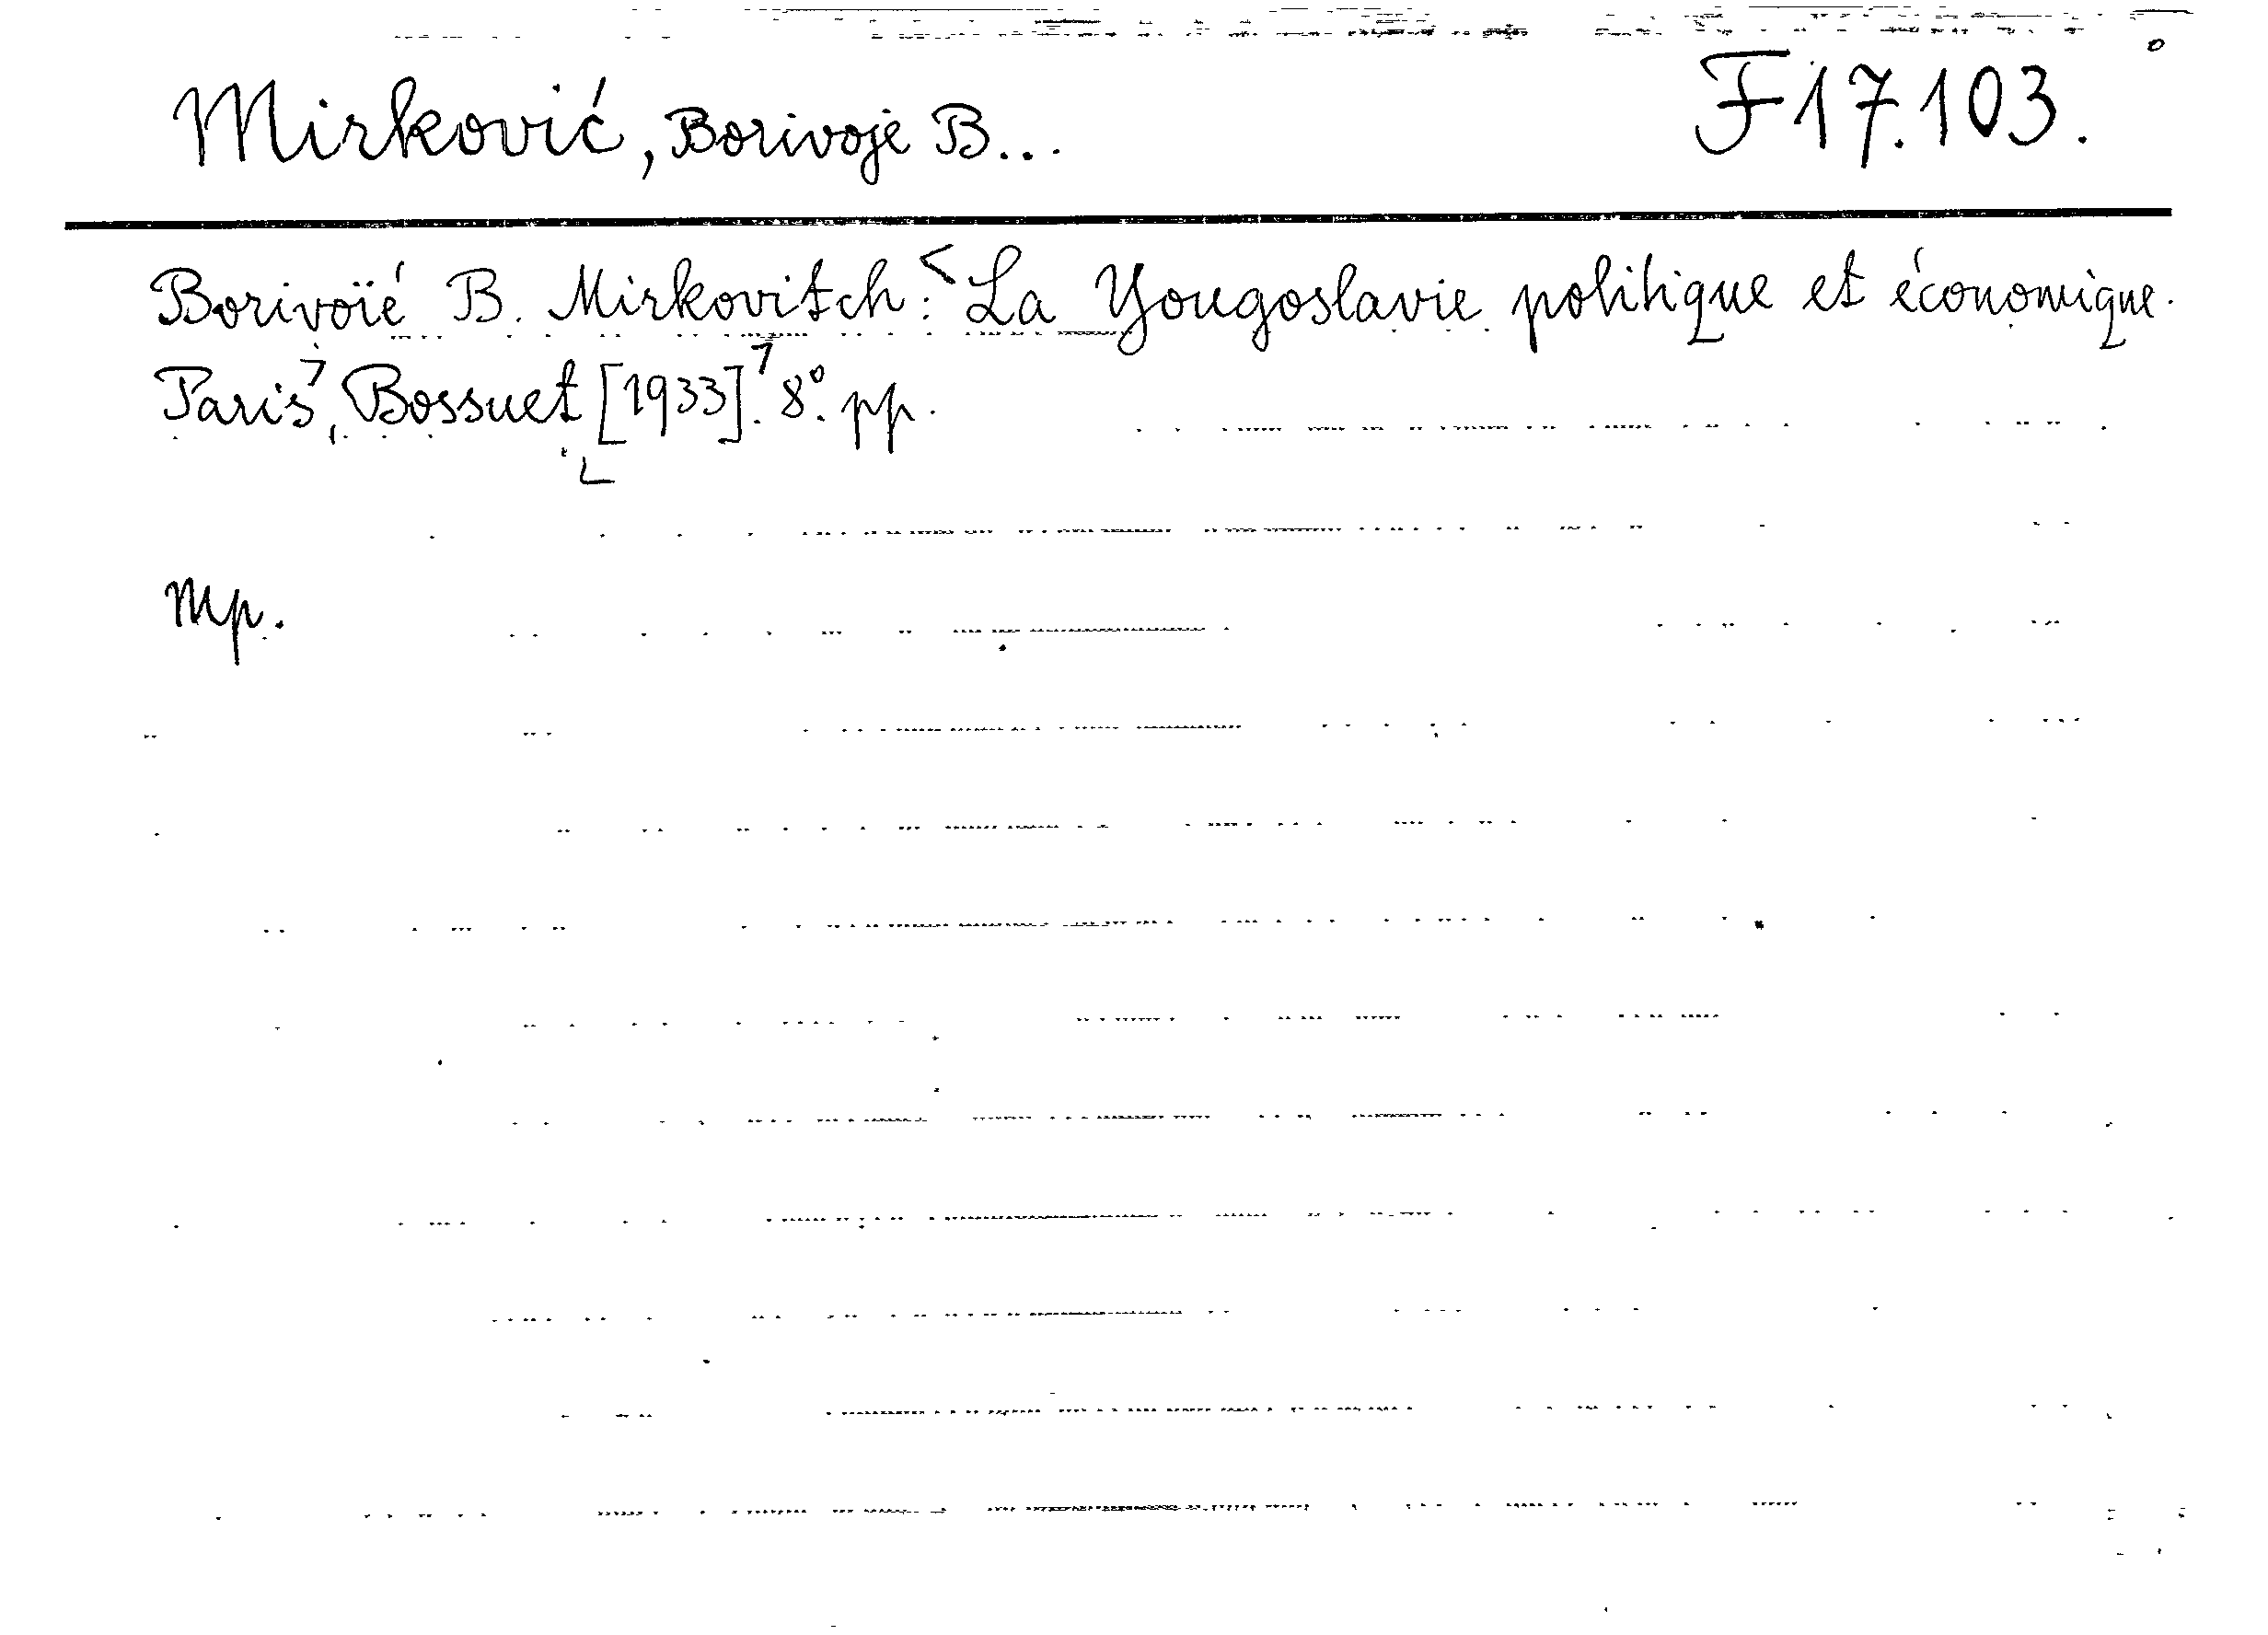 Mirković, Borivoje B...
F 17.103.
Borivoïé B. Mirkovitch: <La Yougoslavie politique et économique.
Paris, Bossuet [1933]. 8°. pp.
Mp.